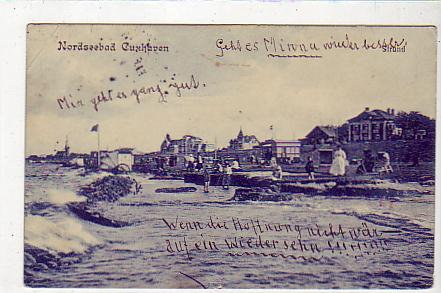 Nordseebad Cuxhaven
Geht es Minna wieder besser,
Strand
Mir geht es ganz gut.
Wenn die Hoffnung nicht wär
auf ein Wiedersehn !!!!!!!